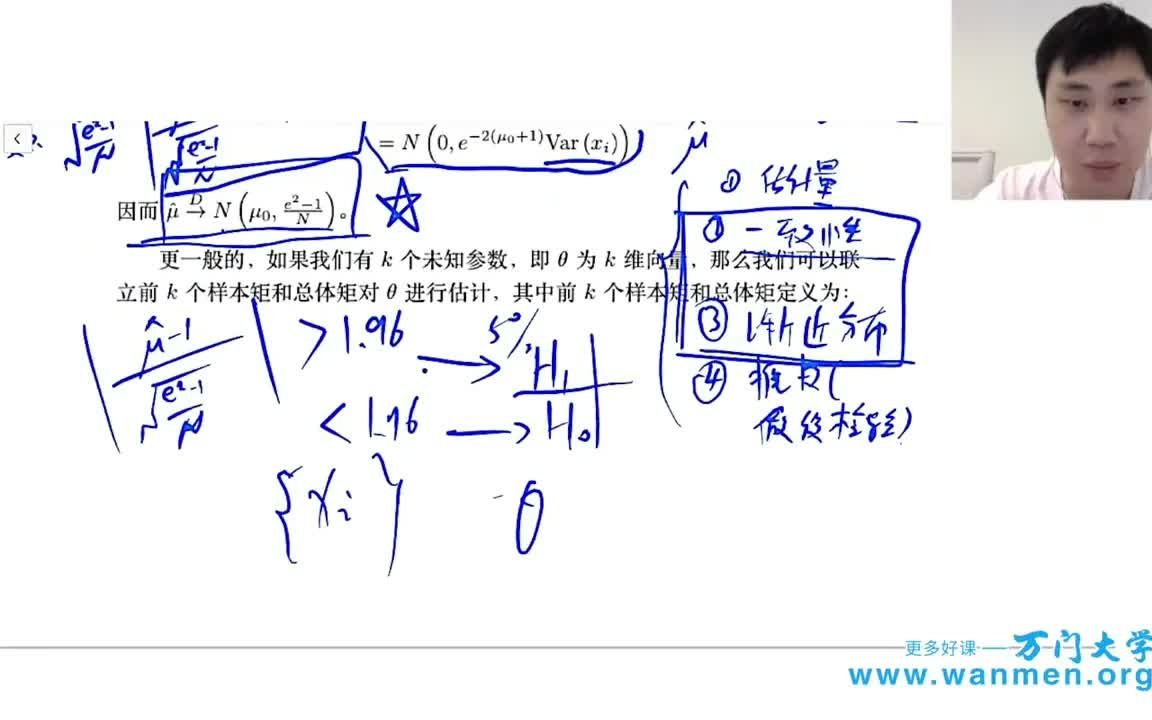 = N (0, e^{-2(μ₀+1)} Var (x_i))
\sqrt{\frac{e^2-1}{N}}
\sqrt{\frac{e^2-1}{N}}
\hat{μ}
因而 \hat{μ} \xrightarrow{D} N (μ₀, \frac{e^2-1}{N})。
① 估计量
② 一致性
更一般的，如果我们有 k 个未知参数，即 θ 为 k 维向量，那么我们可以联
立前 k 个样本矩和总体矩对 θ 进行估计，其中前 k 个样本矩和总体矩定义为：
③ 渐近分布
④ 推断(
假设检验)
| \frac{\hat{μ}-1}{\sqrt{\frac{e^2-1}{N}}} | > 1.96 → 5% H₁
< 1.96 → H₀
{x_i} θ
更多好课 —— 万门大学
www.wanmen.org